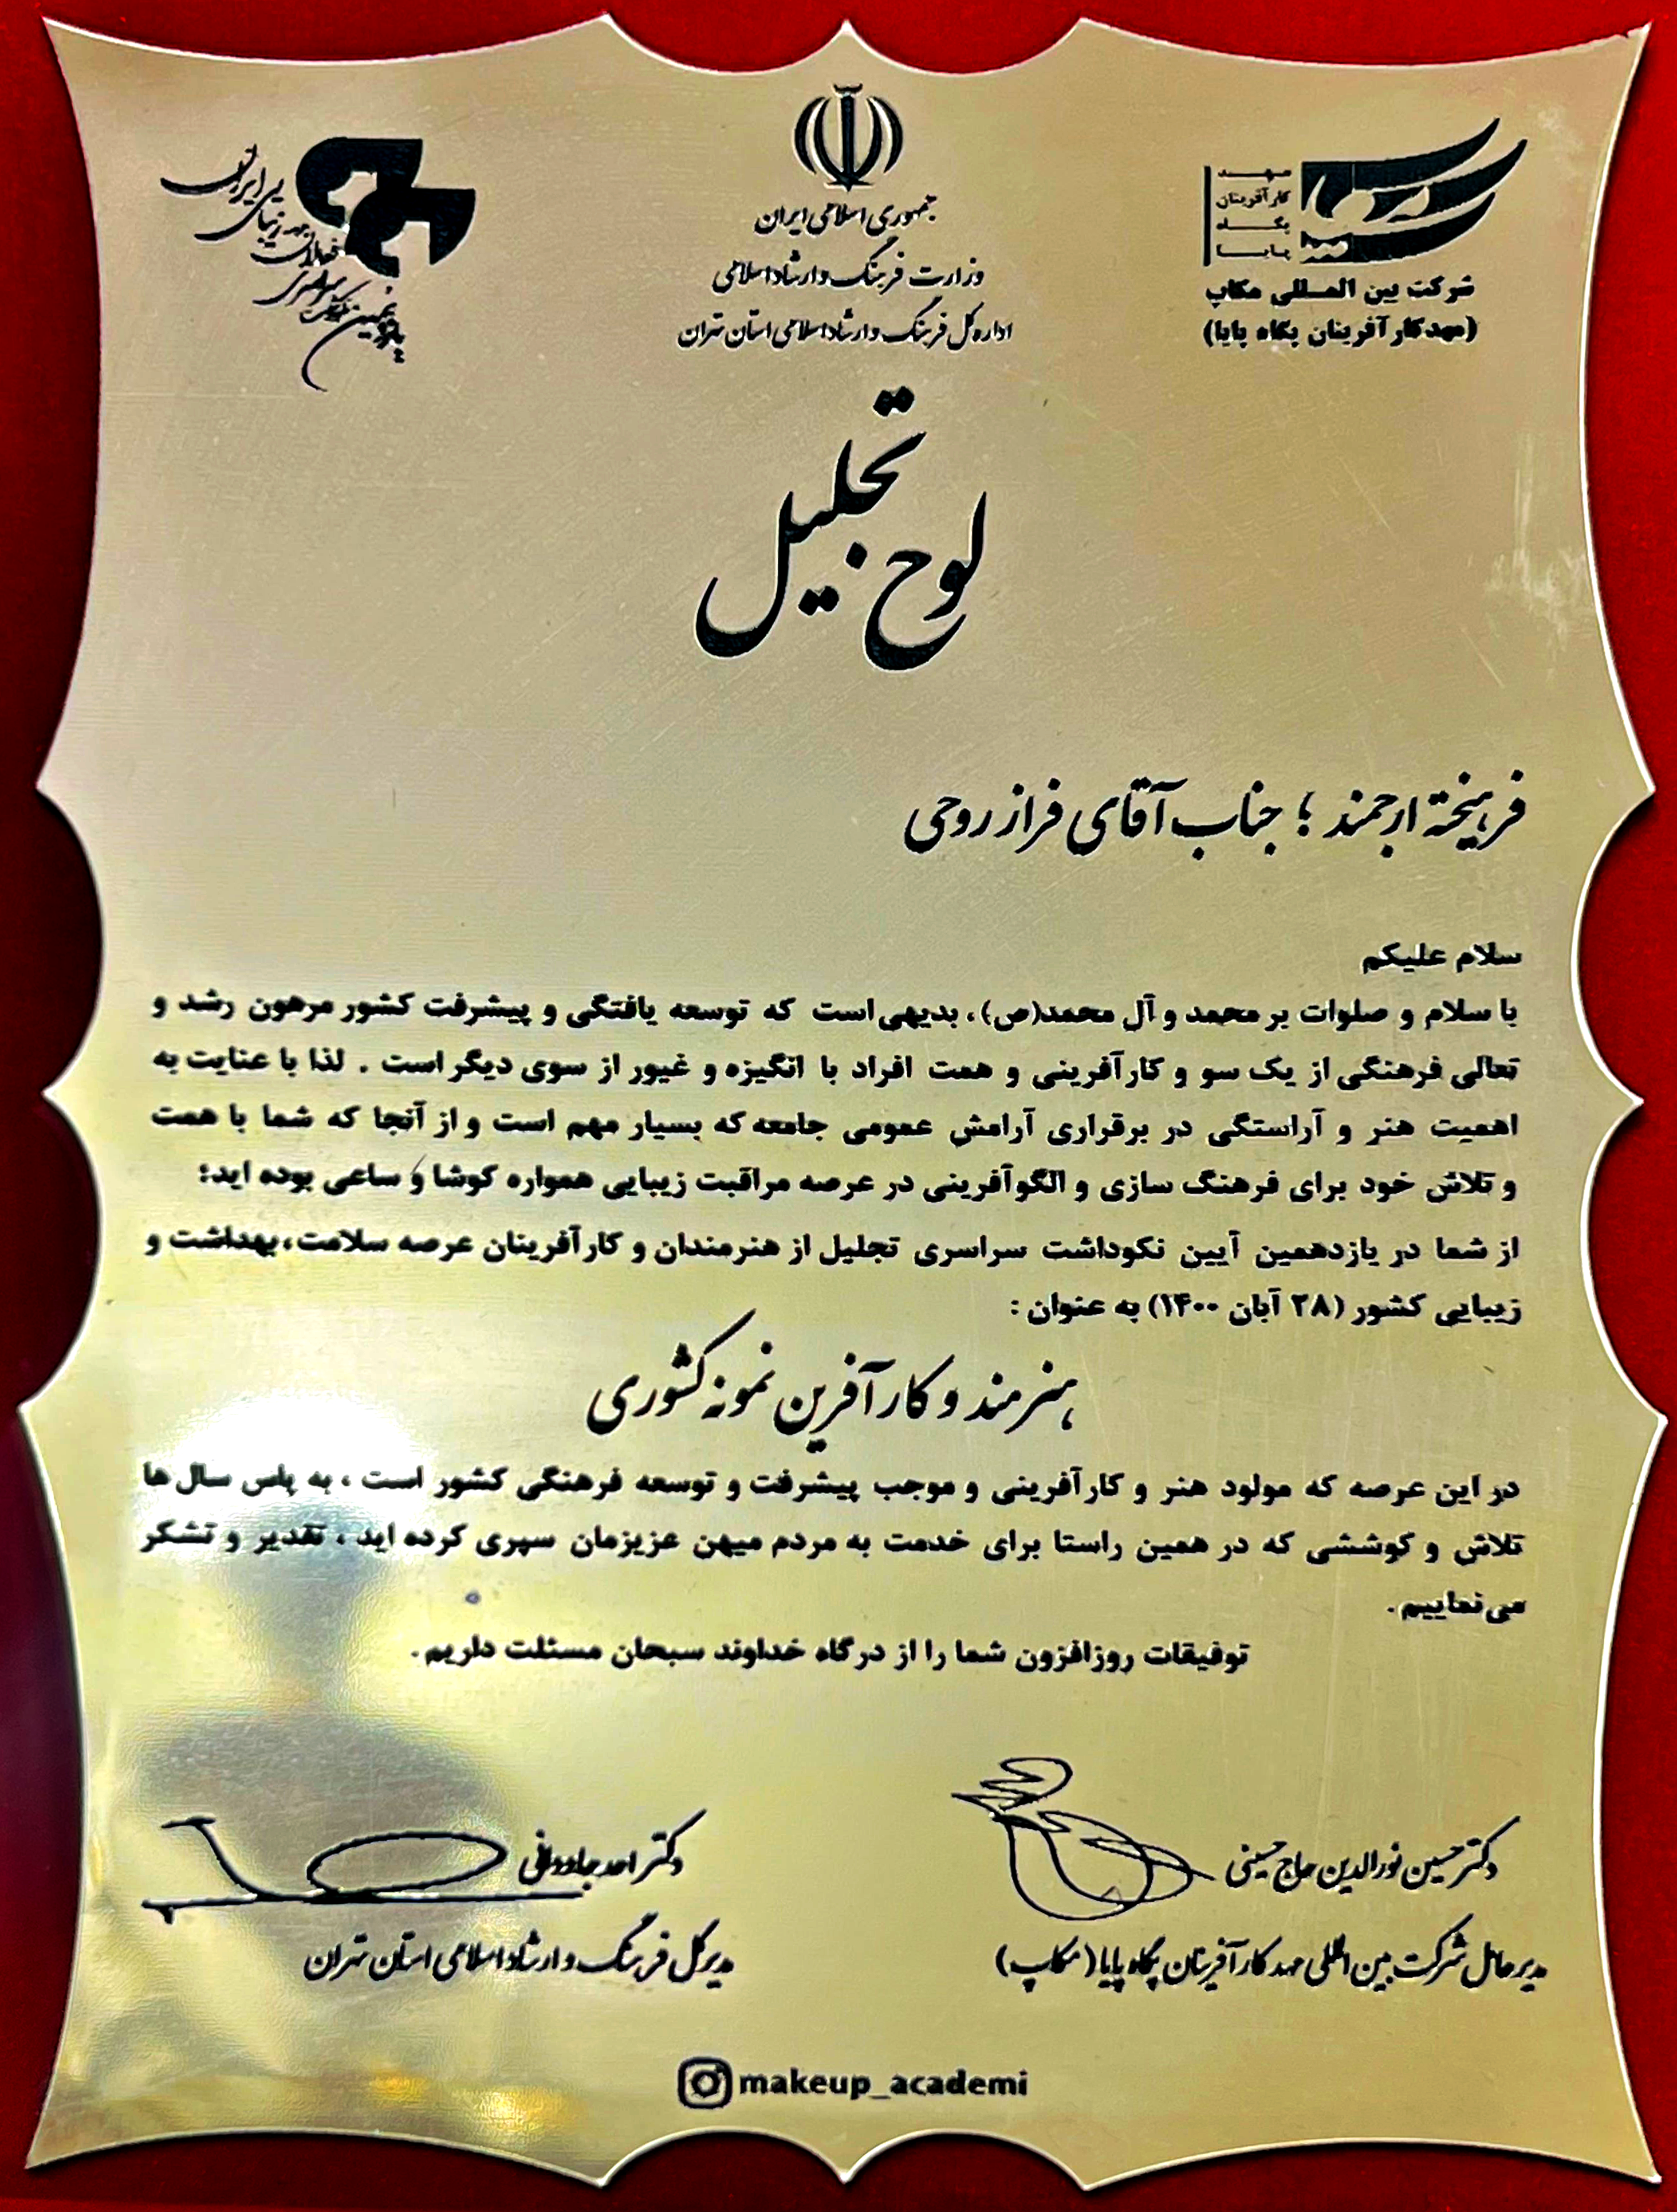 مهد
کارآفرینان
پگاه
پایا
شرکت بین المللی مکاپ
(مهدکارآفرینان پگاه پایا)
جمهوری اسلامی ایران
وزارت فرهنگ و ارشاد اسلامی
اداره کل فرهنگ و ارشاد اسلامی استان تهران
لوح تجلیل
فرهیختهٔ ارجمند ؛ جناب آقای فراز روحی
سلام علیکم
با سلام و صلوات بر محمد و آل محمد(ص)، بدیهی است که توسعه یافتگی و پیشرفت کشور مرهون رشد و
تعالی فرهنگی از یک سو و کارآفرینی و همت افراد با انگیزه و غیور از سوی دیگر است . لذا با عنایت به
اهمیت هنر و آراستگی در برقراری آرامش عمومی جامعه که بسیار مهم است و از آنجا که شما با همت
و تلاش خود برای فرهنگ سازی و الگوآفرینی در عرصه مراقبت زیبایی همواره کوشا و ساعی بوده اید؛
از شما در یازدهمین آیین نکوداشت سراسری تجلیل از هنرمندان و کارآفرینان عرصه سلامت،بهداشت و
زیبایی کشور (۲۸ آبان ۱۴۰۰) به عنوان :
هنرمند و کارآفرین نمونه کشوری
در این عرصه که مولود هنر و کارآفرینی و موجب پیشرفت و توسعه فرهنگی کشور است ، به پاس سال ها
تلاش و کوششی که در همین راستا برای خدمت به مردم میهن عزیزمان سپری کرده اید ، تقدیر و تشکر
می نماییم.
توفیقات روزافزون شما را از درگاه خداوند سبحان مسئلت داریم.
دکتر حسین نورالدین حاج حسینی
مدیرعامل شرکت بین المللی مهد کارآفرینان پگاه پایا (مکاپ)
دکتر احد جاودانی
مدیرکل فرهنگ و ارشاد اسلامی استان تهران
makeup_academi